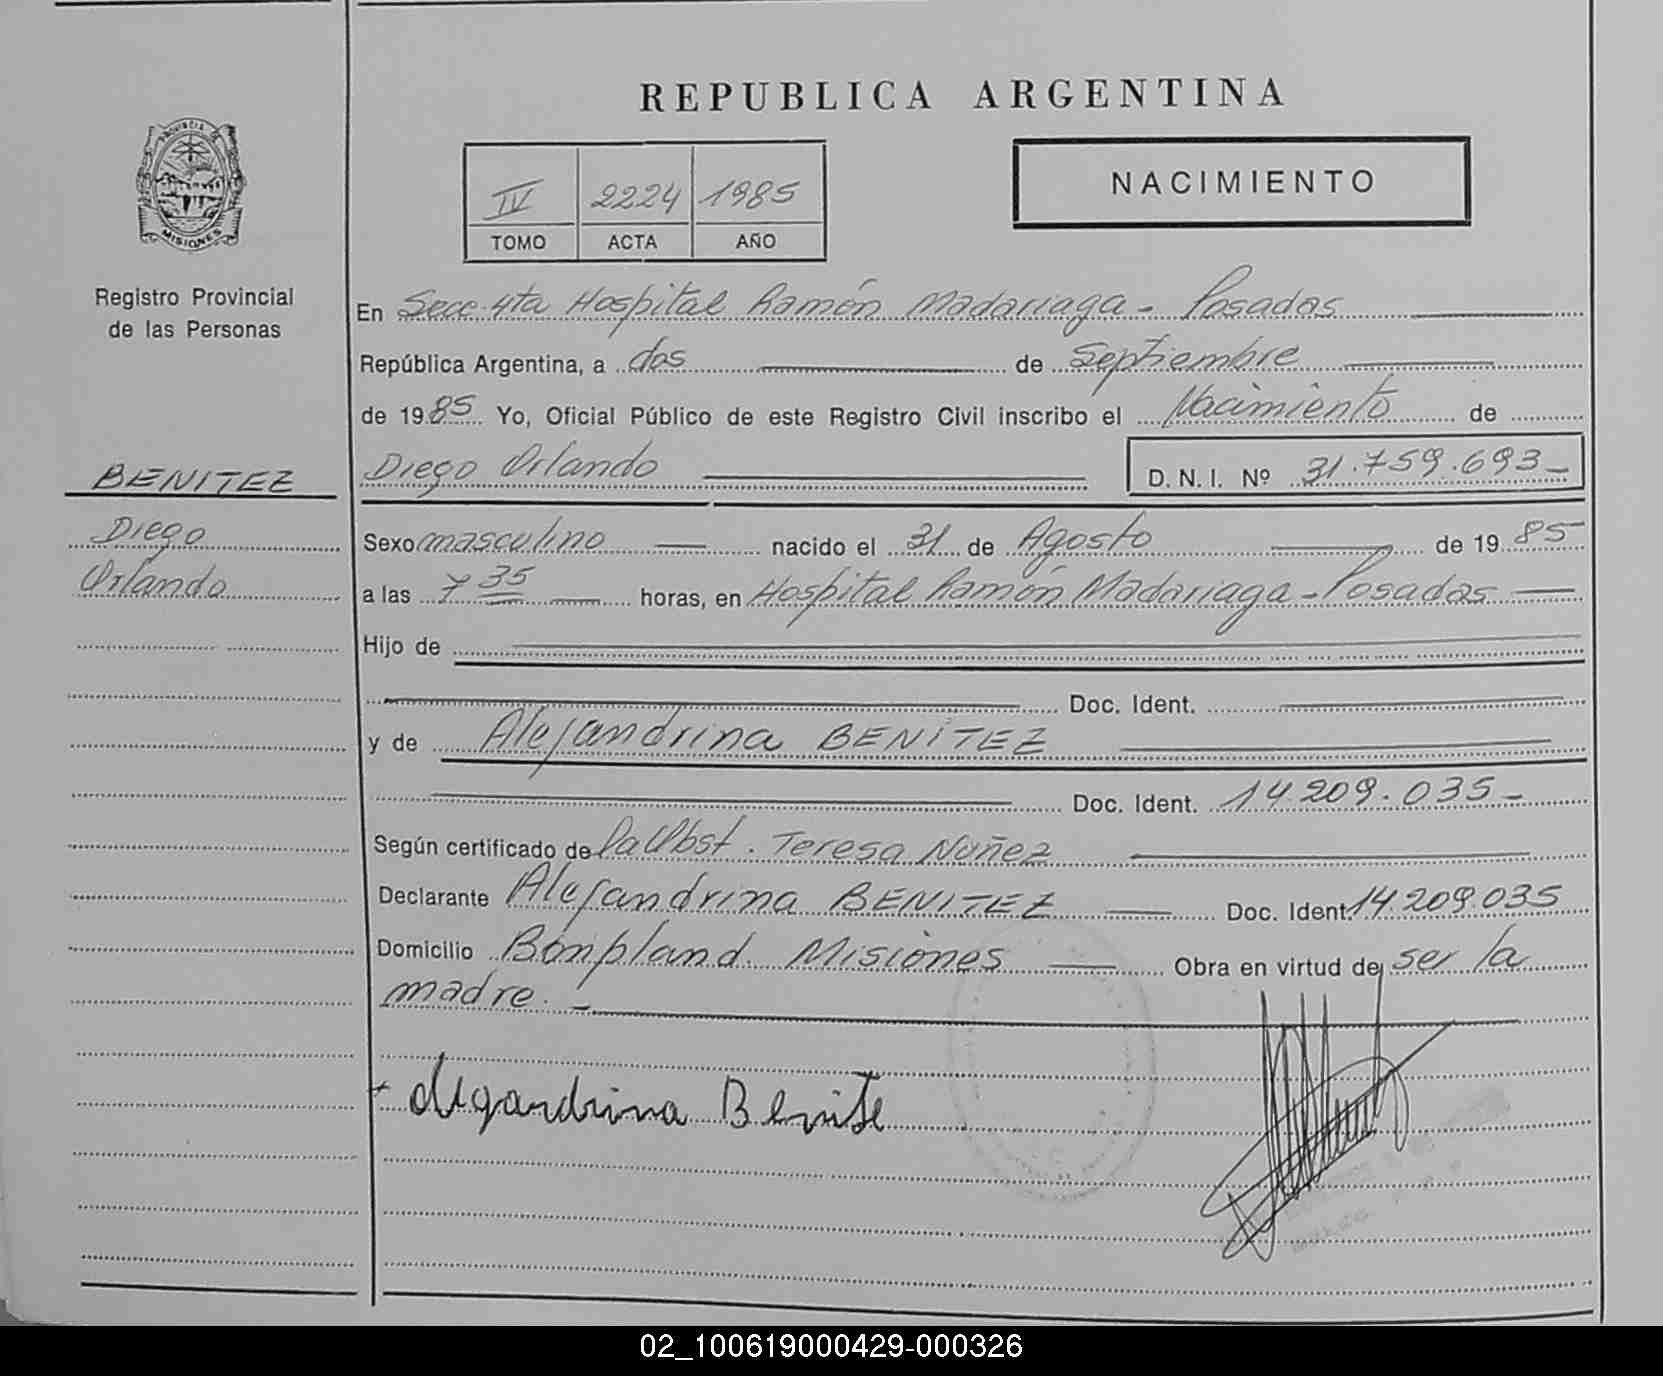 REPUBLICA ARGENTINA
PROVINCIA DE
MISIONES
IV 2224 1985
TOMO ACTA AÑO
NACIMIENTO
Registro Provincial
de las Personas
En Secc. 4ta Hospital Ramón Madariaga - Posadas
República Argentina, a dos de Septiembre
de 1985 Yo, Oficial Público de este Registro Civil inscribo el Nacimiento de
BENITEZ
Diego Orlando D. N. I. Nº 31.759.693-
Diego
Orlando
Sexo masculino nacido el 31 de Agosto de 1985
a las 7 35 horas, en Hospital Ramón Madariaga - Posadas
Hijo de
Doc. Ident.
y de Alejandrina BENÍTEZ
Doc. Ident. 14.209.035-
Según certificado de Obst. Teresa Nuñez
Declarante Alejandrina BENITEZ Doc. Ident. 14.209.035
Domicilio Bonpland. Misiones Obra en virtud de ser la
madre. -
Alejandrina Benite
02_100619000429-000326